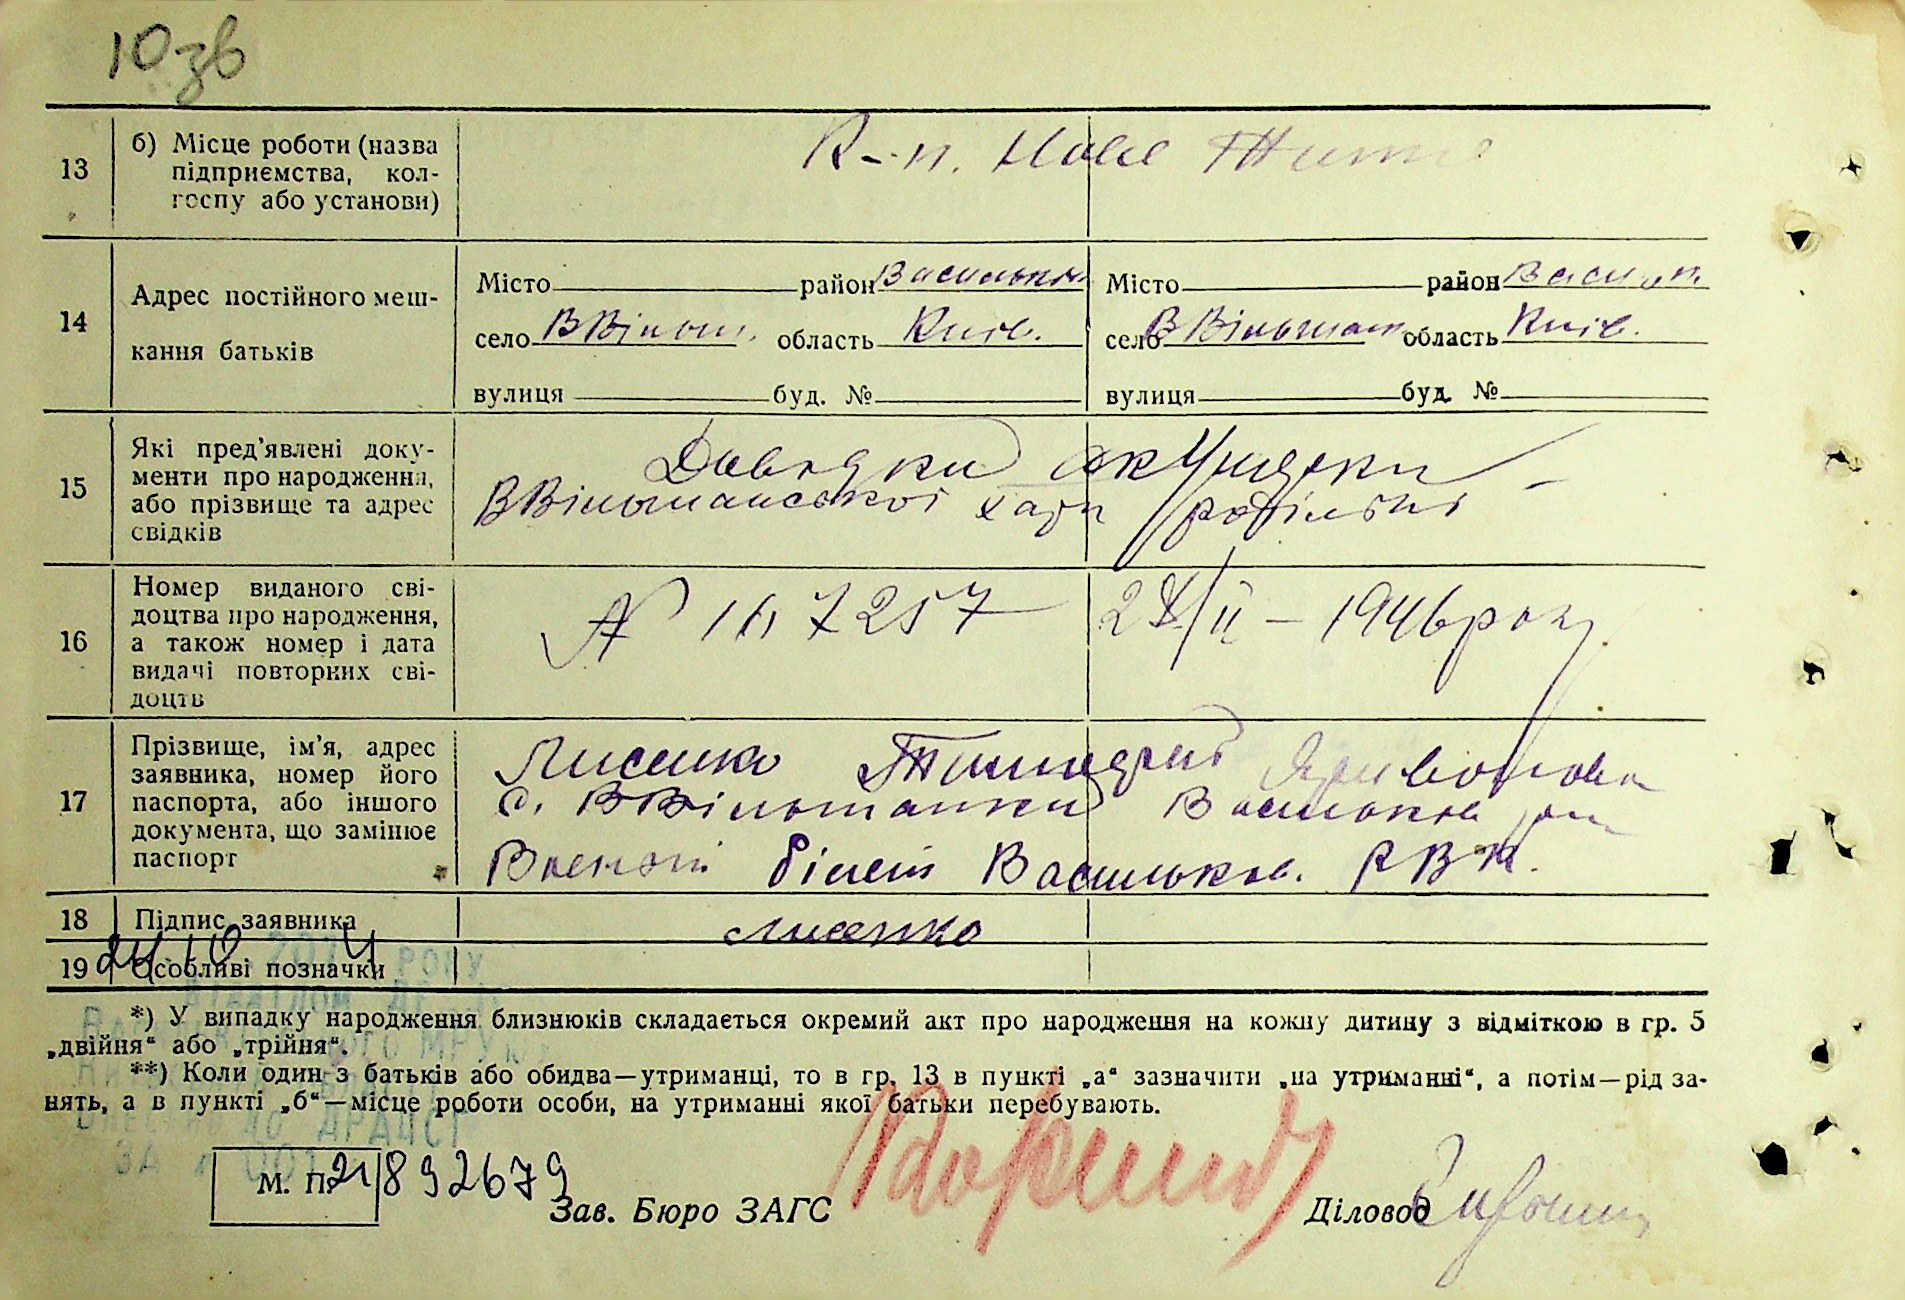 10 зв
13 б) Місце роботи (назва
підприємства, кол-
госпу або установи)
К-п. Нове Життя
14 Адрес постійного меш-
кання батьків
Місто район Васильків Місто район Васильк.
село ВВільш. область Київ. село ВВільшан область Київ.
вулиця буд. № вулиця буд. №
15 Які пред'явлені доку-
менти про народження,
або прізвище та адрес
свідків
Довідки акушерки
ВВільшанської хати родільні
16 Номер виданого сві-
доцтва про народження,
а також номер і дата
видачі повторних сві-
доцтв
№ 257 28/II – 1946 року
17 Прізвище, ім'я, адрес
заявника, номер його
паспорта, або іншого
документа, що замінює
паспорт
Лисенко
с. ВВільшанки Васильків
Воєнний білет Васильков. РВК.
18 Підпис заявника Лисенко
24 10 2014 РОКУ
19 Особливі позначки
ВІДДІЛОМ
*) У випадку народження близнюків складається окремий акт про народження на кожну дитину з відміткою в гр. 5
„двійня“ або „трійня“.
**) Коли один з батьків або обидва—утриманці, то в гр. 13 в пункті „а“ зазначити „на утриманні“, а потім—рід за-
нять, а в пункті „б“—місце роботи особи, на утриманні якої батьки перебувають.
ЗА №
М. П. 21892679
Зав. Бюро ЗАГС
Діловод